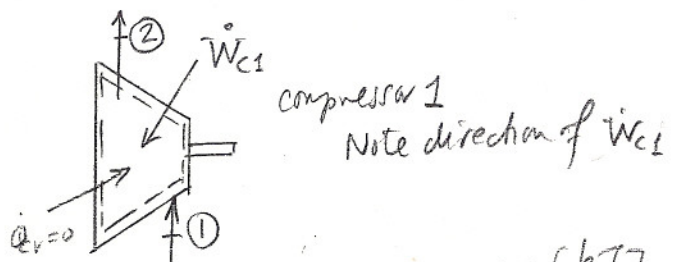 ②
Ẇc1
compressor 1
Note direction of Ẇc1
Q̇cv=0
①